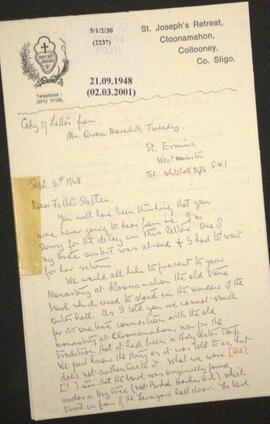 5/1/2/30
(2237)
St. Joseph's Retreat,
Cloonamahon,
Collooney,
Co. Sligo.
21.09.1948
(02.03.2001)
Telephone:
(071) 71155.
Copy of Letter from
Mr. Owen Meredith Tweedy
St. Ermins,
Westminster
Tel: Whitehall 3176 S.W.1
Sept. 21st 1948
Dear Father Stephen,
You will have been thinking that you
were never going to hear from me. I'm
sorry for the delay in this letter. One of
my three sisters was abroad & I had to wait
for her return.
We would all like to present to your
Monastery at Cloonamahon the old stone
bowl which used to stand in the window of the
outer hall. As I told you we cannot vouch
for its one time connection with the old
monastery at Cloonamahon, nor for the
tradition that it had been a Holy Water Stoup.
We just know the story as it was told to us, but
does not authenticate it. What we were [told]
[?] was that the bowl was originally found
under a big tree (not Buckeye Hooker Oak) which
stood in front of the farmyard hall door. The bowl